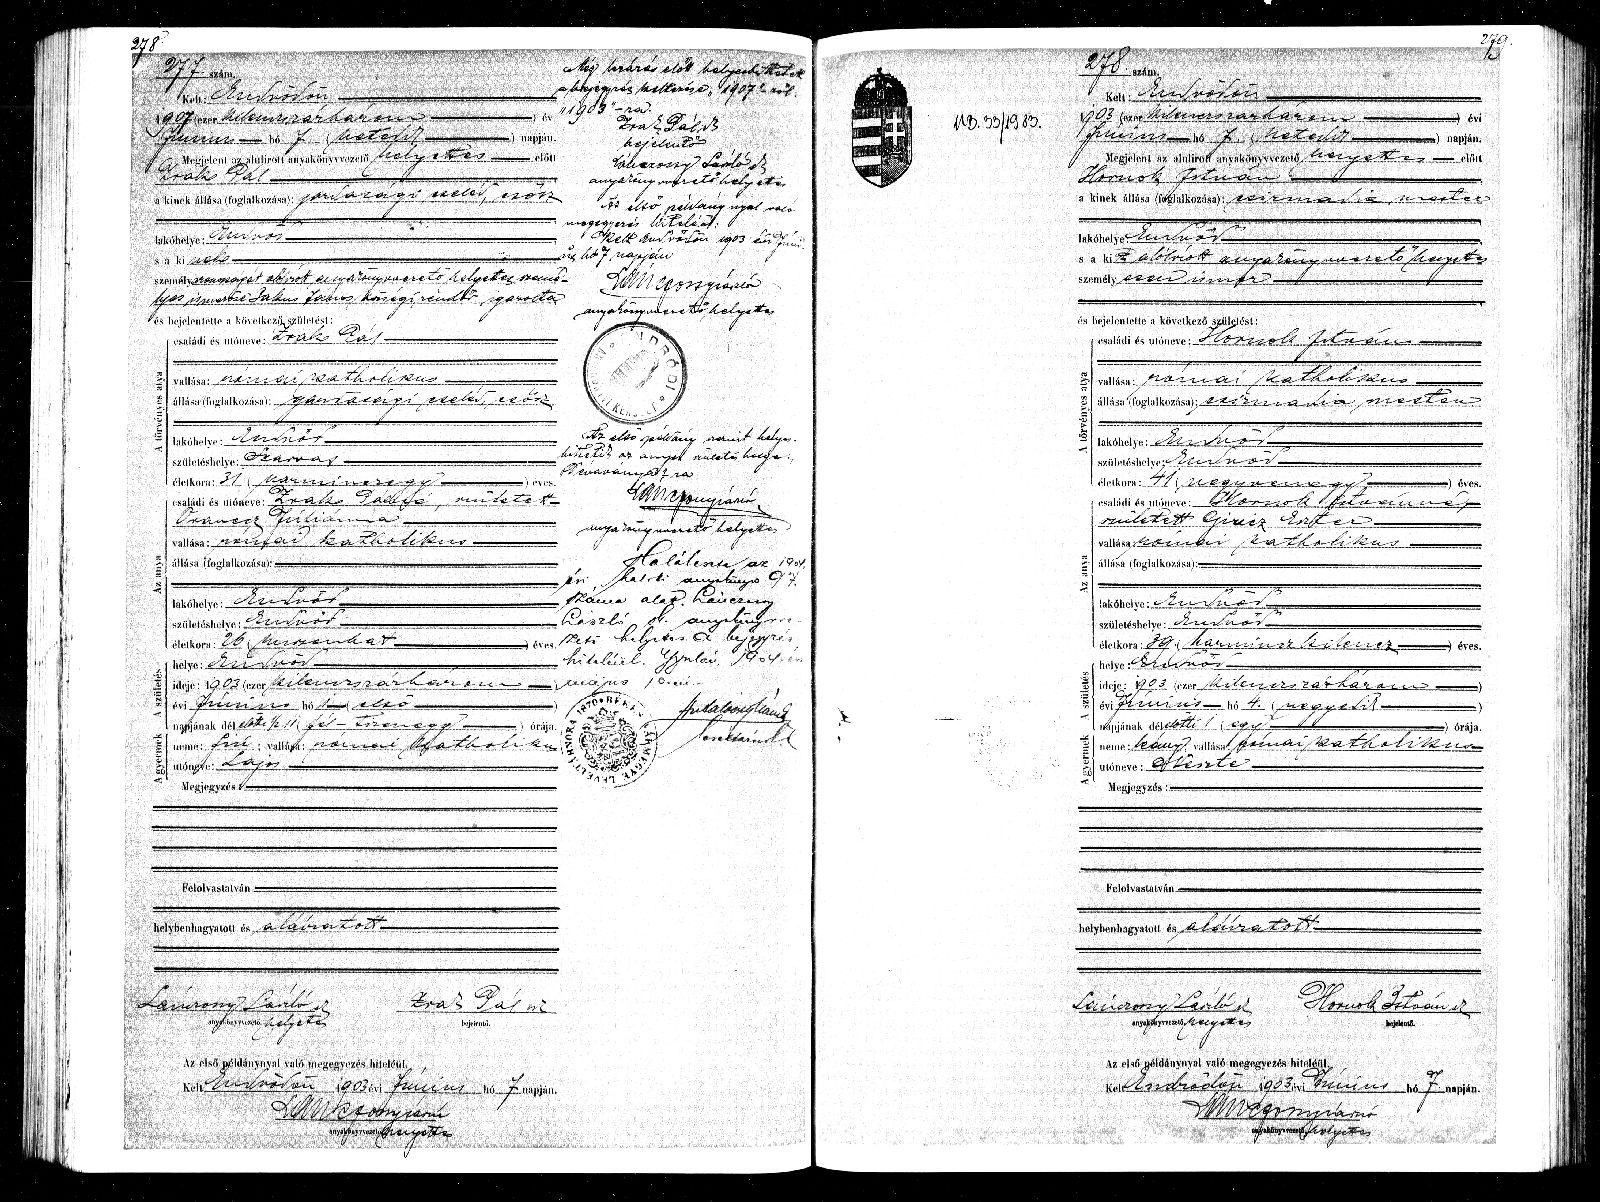 278
277 szám.
Kelt: Endrődön
1907 (ezer kilenczszázhárom) év
Június hó 7. (hetedik) napján.
Megjelent az alulirott anyakönyvvezető helyettes előtt
Zrak Pál
a kinek állása (foglalkozása): gazdasági cseléd, csősz
lakóhelye: Endrőd
s a ki
személyazonosságát alólirott anyakönyvvezető helyettes szemé-
lyes ismerőse Jakus János községi rendőr igazolta
és bejelentette a következő születést:
A törvényes atya
családi és utóneve: Zrak Pál
vallása: római katholikus
állása (foglalkozása): gazdasági cseléd, csősz
lakóhelye: Endrőd
születéshelye: Szarvas
életkora: 31 (harminczegy) éves.
Az anya
családi és utóneve: Zrak Pálné, született
Juliánna
vallása: római katholikus
állása (foglalkozása):
lakóhelye: Endrőd
születéshelye: Endrőd
életkora: 26 (huszonhat) éves.
A születés
helye: Endrőd
ideje: 1903 (ezer kilenczszázhárom)
évi Június hó 1 (első)
napjának dél előtt ½ 11 (fél-tizenegy) órája.
A gyermek
neme: fiú; vallása: római katholikus
utóneve: Lajos
Megjegyzés:
Felolvastatván
helybenhagyatott és aláiratott
Lánczony László sk
anyakönyvvezető helyettes
Zrak Pál sk
bejelentő.
Az első példánynyal való megegyezés hiteléül.
Kelt Endrődön 1903 évi Június hó 7 napján.
anyakönyvvezető helyettes
Még lezárás előtt helyesbíttetek
a bejegyzés keltezése "1907"-ről
"1903"-ra.
Zrak Pál sk
bejelentő
Lánczony László sk
anyakönyvvezető helyettes
Az első példánynyal való
megegyezés hiteléül:
Kelt Endrődön 1903 évi Júni-
us hó 7 napján
anyakönyvvezető helyettes
Az első példány szerint helyes-
bíttetik az anya születés helye:
Dévaványára
anyakönyvvezető helyettes
Halálesete az 1904
évi halotti anyakönyv 97.
száma alatt. Lánczony
László sk. anyakönyvve-
zető helyettes E bejegyzés
hiteléül. Gyula, 1904 évi
május
279.
NB. 33/1983.
278 szám.
Kelt: Endrődön
1903 (ezer kilenczszázhárom) évi
Június hó 7. (hetedik) napján.
Megjelent az alulirott anyakönyvvezető helyettes előtt
Hornok István
a kinek állása (foglalkozása): csizmadia mester
lakóhelye: Endrőd
s a kit alólirott anyakönyvvezető helyettes
személyesen ismer
és bejelentette a következő születést:
A törvényes atya
családi és utóneve: Hornok István
vallása: római katholikus
állása (foglalkozása): csizmadia mester
lakóhelye: Endrőd
születéshelye: Endrőd
életkora: 41 (negyvenegy) éves.
Az anya
családi és utóneve: Hornok Istvánné,
született Giricz Eszter
vallása: római katholikus
állása (foglalkozása):
lakóhelye: Endrőd
születéshelye: Endrőd
életkora: 39 (harminczkilencz) éves.
A születés
helye: Endrőd
ideje: 1903 (ezer kilenczszázhárom)
évi Június hó 4. (negyedik)
napjának délelőtti 1 (egy) órája.
A gyermek
neme: leány; vallása: római katholikus
utóneve:
Megjegyzés:
Felolvastatván
helybenhagyatott és aláiratott
Lánczony László sk
anyakönyvvezető helyettes
Hornok István sk
bejelentő.
Az első példánynyal való megegyezés hiteléül.
Kelt Endrődön 1903 évi Június hó 7 napján.
anyakönyvvezető helyettes